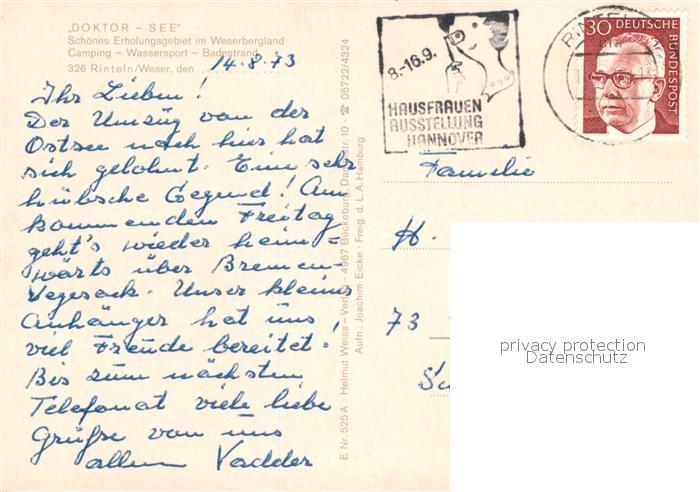 „DOKTOR – SEE"
Schönes Erholungsgebiet im Weserbergland
Camping – Wassersport – Badestrand
326 Rinteln/Weser, den 14.8.73
Ihr Lieben!
Der Umzug von der
Ostsee nach hier hat
sich gelohnt. Eine sehr
hübsche Gegend! Am
kommenden Freitag
geht's wieder heim-
wärts über Bremen-
Vegesack. Unser kleiner
Anhänger hat uns
viel Freude bereitet!
Bis zum nächsten
Telefonat viele liebe
Grüße von uns
allen Vadder
E Nr. 525 A · Helmut Weiss – Verlag · 4967 Bückeburg, Str. 10 · ☎ 05722/4324
Aufn.: Joachim Eicke · Freig. d. L.A. Hamburg
8.-16.9.
HAUSFRAUEN
AUSSTELLUNG
HANNOVER
30 DEUTSCHE
BUNDESPOST
Familie
H.
73
privacy protection
Datenschutz